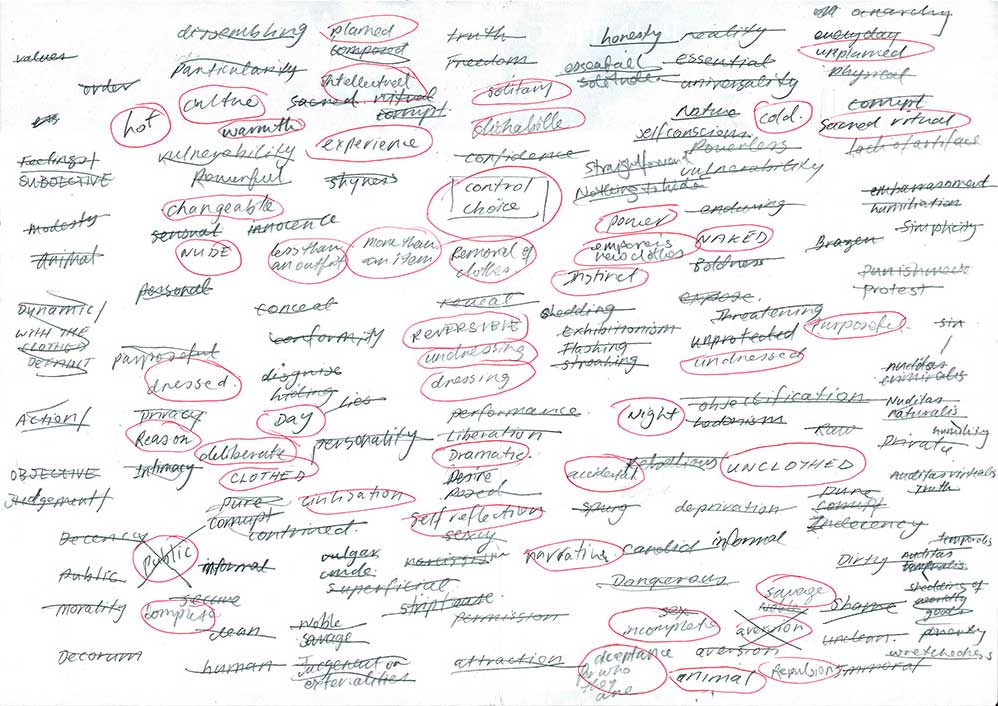 dissembling planned truth honesty reality anarchy
values composed everyday
particularity Freedom essential essential unplanned
order Intellectual solitude universality physical
culture sacred ritual solitary
hot corrupt Nature cold. corrupt
warmth dishabille selfconscious sacred ritual
experience Powerless lack of artiface
vulnerability confidence Straightforward vulnerability
Feelings/
SUBJECTIVE Powerful shyness control Nothing to hide embarrasment
changeable choice humiliation
modesty sensual innocence power enduring Simplicity
NUDE less than more than Removal of emporers NAKED Brazen
Animal an outfit an item clothes news clothes Boldness
Instinct Punishment
personal Protest
Dynamic/ conceal reveal shedding expose.
REVERSIBLE Exhibitionism Threatening purposeful sin
WITH THE conformity Flashing unprotected
CLOTHED undressing streaking undressed
DEFAULT purposeful nuditas
dressed. disguise dressing criminalis
hiding Nuditas
lies objectification naturalis
Action/ privacy Day performance Night hedonism Raw humility
Reason personality Liberation Private
deliberate Dramatic rebellious UNCLOTHED
OBJECTIVE Intimacy CLOTHED Desire accidental nuditas virtualis
Judgement/ Posed Truth
pure civilisation sprung deprivation pure
corrupt self reflection corrupt
contrived. sexy Indecency
Decency public narrative candid informal temporalis
informal vulgar narcissism Dirty nuditas
Public nude. temporalis
superficial Dangerous shedding of
secure striptease savage worldly
morality complete permission sex Noble Shame goods
clean Noble incomplete aversion unclean. poverty
savage aversion wretchedness
Decorum human Judgement on attraction acceptance
externalities for who animal Repulsion Immoral
they
are